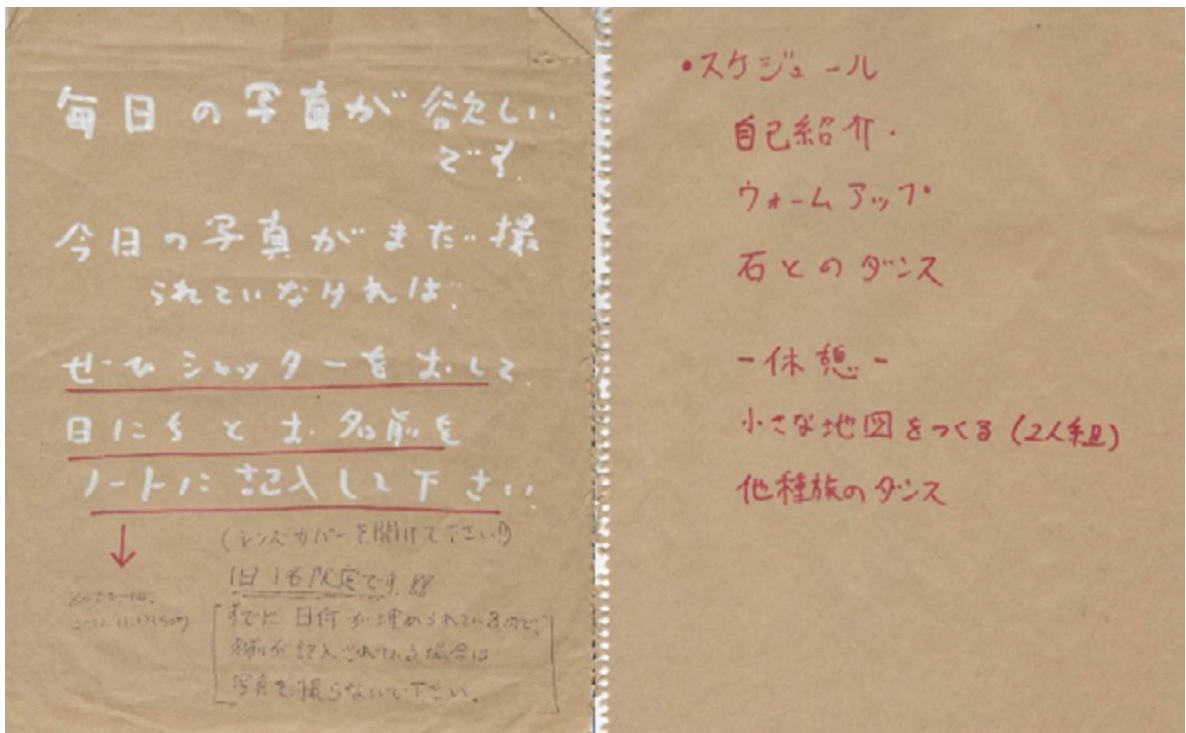 毎日の写真が欲しい
です.
今日の写真がまだ撮
られていなければ、
ぜひシャッターをおして
日にちとお名前を
ノートに記入して下さい.
(レンズカバーを開けて下さい!!)
1日1名限定です.
すでに日付が埋められているので、
名前が記入されている場合は
写真を撮らないで下さい.
•スケジュール
自己紹介.
ウォームアップ
石とのダンス
-休憩-
小さな地図をつくる(2人組)
他種族のダンス